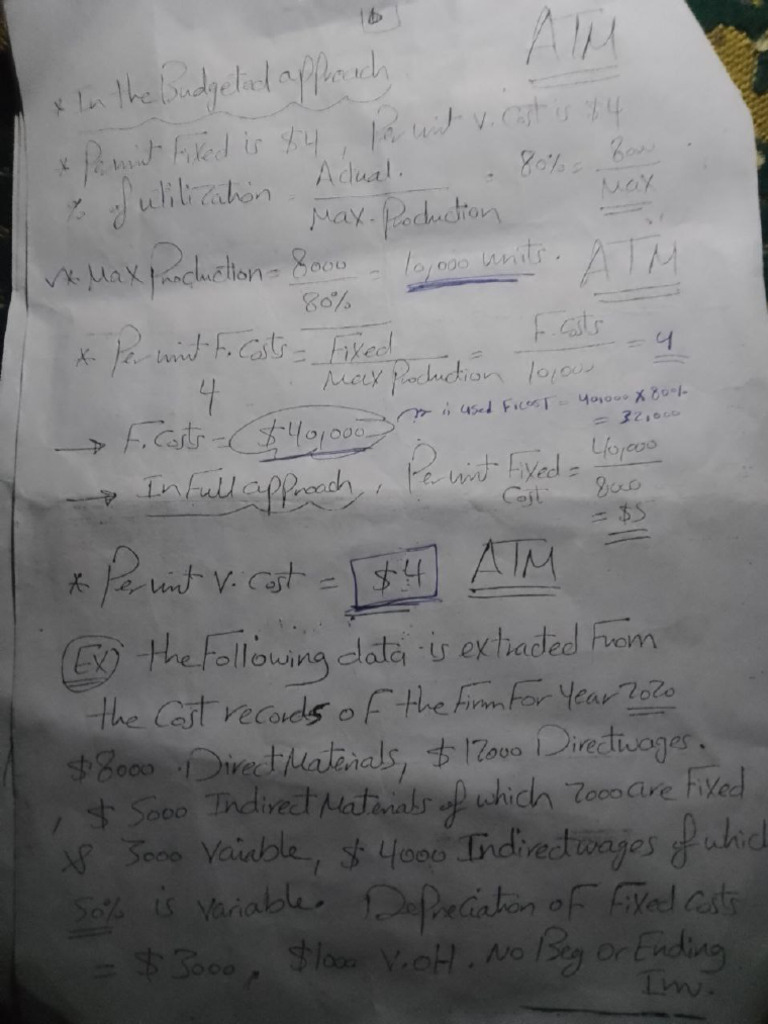 16
ATM
* In the Budgeted approach
* Per unit Fixed is $4, Per unit v. cost is $4
% of utilization = Actual. / Max. Production = 80% = 8000 / Max
* Max Production = 8000 / 80% = 10,000 units. ATM
* Per unit F. Costs = Fixed / Max Production = F. Costs / 10,000 = 4
4
→ F. Costs = $40,000 used F. Cost = 40,000 x 80%
= 32,000
→ In Full approach, Per unit Fixed Cost = 40,000 / 8000
= $5
* Per unit v. cost = $4 ATM
(EX) the Following data is extracted From
the Cost records of the Firm For Year 2020
$8000 Direct Materials, $12000 Direct wages.
, $ 5000 Indirect Materials of which 2000 are Fixed
& 3000 Vairble, $ 4000 Indirect wages of which
50% is variable. Depreciation of Fixed Costs
= $ 3000, $1000 V.OH. No Beg or Ending
Inv.